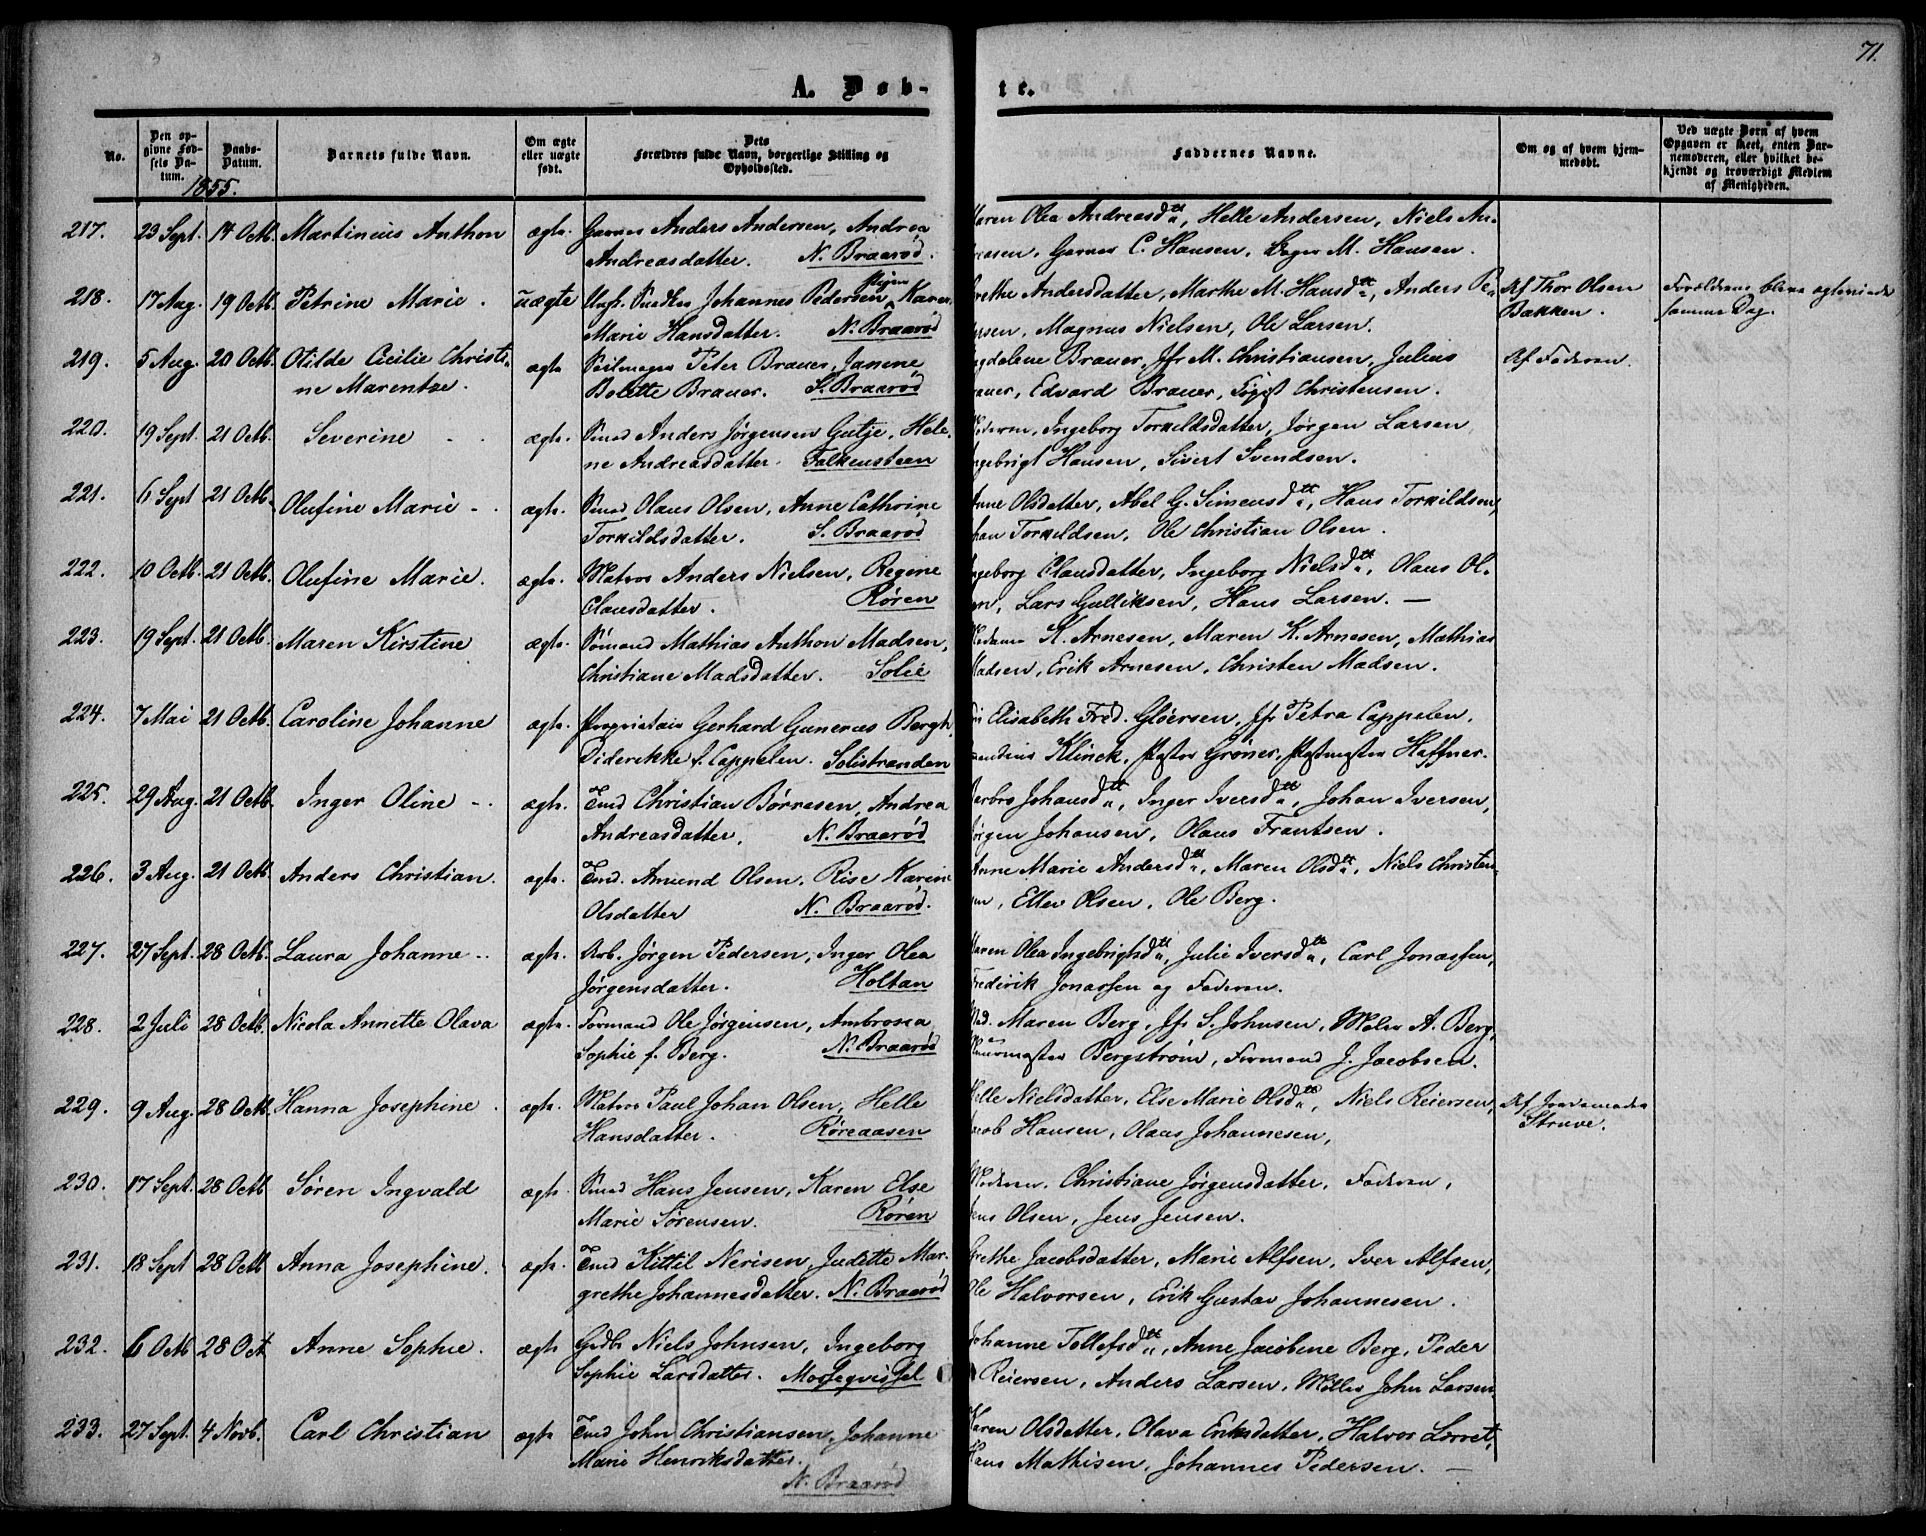 71.
A. Døb-
te.
No.
Den op-
givne Fød-
sels Da-
tum.
Daabs-
Datum.
Barnets fulde Navn.
Om ægte
eller uægte
født.
Dets
Forældres fulde Navn, borgerlige Stilling og
Opholdssted.
Faddernes Navne.
Om og af hvem hjem-
medøbt.
Ved uægte Børn af hvem
Opgaven er skeet, enten Bar-
nemoderen, eller hvilket be-
kjendt og troværdigt Medlem
af Menigheden.
1855.
217. 23 Sept. 14 Octb. Martinius Anthon ægte Garver Anders Andersen, Andrea
Andreasdatter. N. Braarød.
Maren Olea Andreasdtr, Helle Andersen, Niels An-
dreasen, Garver C. Hansen, Bager M. Hansen.
218. 17 Aug. 19 Octb. Petrine Marie. uægte Ungk. Snedker Johannes Pedersen, Pigen Karen
Marie Hansdatter. N. Braarød
Grethe Andersdatter, Marthe M. Hansdtr, Anders Pe-
dersen, Magnus Nielsen, Ole Larsen.
Af Thor Olsen
Bakken.
Forældrene bleve ægteviede
samme Dag.
219. 5 Aug. 20 Octb. Otilde Cecilie Christi-
ne Marentze. ægte Seilmager Peter Brauer, Janine
Bolette Brauer. S. Braarød
Magdalene Brauer, Jfr M. Christiansen, Julius
Brauer, Edvard Brauer, Christensen.
Af Faderen.
220. 19 Sept. 21 Octb. Severine ægte. Smed Anders Jørgensen Gutje, Hele-
ne Andreasdatter. Falkensteen
Moderen, Ingeborg Torkildsdatter, Jørgen Larsen
Ingebrigt Hansen, Sivert Svendsen.
221. 6 Sept 21 Octb. Olufine Marie ægte. Smed Olaus Olsen, Anne Cathrine
Torkildsdatter. S. Braarød
Anne Olsdatter, Abel G. Simensdtr, Hans Torkildsen,
Johan Torkildsen, Ole Christian Olsen.
222. 10 Octb. 21 Octb. Olufine Marie. ægte. Matros Anders Nielsen, Regine
Clausdatter. Røren
Ingeborg Clausdatter, Ingeborg Nielsdtr, Olaus Ol-
sen, Lars Gulliksen, Hans Larsen. —
223. 19 Sept. 21 Octb. Maren Kirstine ægte. Sömand Mathias Anthon Madsen,
Christiane Madsdatter. Solie
Moderen K. Arnesen, Maren K. Arnesen, Mathias
Madsen, Erik Arnesen, Christen Madsen.
224. 7 Mai 21 Octb. Caroline Johanne ægte. Proprietair Gerhard Gunerus Bergh,
Diderikke f. Cappelen. Solistranden
Elisabeth Fred. Gløersen, Jfr Petra Cappelen,
Klinck, Pastor Grøner, Postmester Haffner.
225. 29 Aug. 21 Octb. Inger Oline ægte. Tmd Christian Börresen, Andrea
Andreasdatter. N. Braarød
Berbro Johansdtr, Inger Iversdtr, Johan Iversen,
Jørgen Johansen, Olaus Frantsen.
226. 3 Aug. 21 Octb. Anders Christian. ægte. Tmd. Amund Olsen, Rise Karine
Olsdatter N. Braarød.
Anne Marie Andersdtr, Maren Olsdtr, Niels Christen-
sen, Ellev Olsen, Ole Berg.
227. 27 Sept. 28 Octb. Laura Johanne ægte. Arb. Jørgen Pedersen, Inger Olea
Jørgensdatter. Holtan
Maren Olea Ingebrigtsdtr, Julie Iversdtr, Carl Jonassen,
Frederik Jonassen og Faderen.
228. 2 Juli 28 Octb. Nicola Annette Olava ægte. Formand Ole Jørgensen, Ambrosea
Sophie f. Berg. N. Braarød
Mad. Maren Berg, Jfr S. Johnsen, Møller A. Berg,
Muurmester Bergstrøm, Formand J. Jacobsen.
229. 9 Aug. 28 Octb. Hanna Josephine ægte. Matros Paul Johan Olsen, Helle
Hansdatter. Røreaasen
Helle Nielsdatter, Else Marie Olsdtr, Niels Reiersen,
Jacob Hansen, Olaus Johannesen,
Af Jordemoder
Struve.
230. 17 Sept. 28 Octb Søren Ingvald ægte. Smed Hans Jensen, Karen Else
Marie Sørensen. Røren
Moderen, Christiane Jørgensdatter, Faderen,
Jens Olsen, Jens Jensen.
231. 18 Sept 28 Octb Anna Josephine. ægte. Tmd Kittil Nerisen, Judette Mar-
grethe Johannesdatter. N. Braarød
Grethe Jacobsdatter, Marie Alfsen, Iver Alfsen,
Ole Halvorsen, Erik Gustav Johannesen.
232. 6 Octb 28 Oct Anne Sophie. ægte Grdbr Niels Johnsen, Ingeborg
Sophie Larsdatter. Mossegvissel
Johanne Tollefsdtr, Anne Jacobine Berg, Peder
Reiersen, Anders Larsen, Møller John Larsen
233. 27 Sept. 4 Novb. Carl Christian ægte Tmd John Christiansen, Johanne
Marie Henriksdatter.
N. Braarød
Karen Olsdatter, Olava Eriksdatter, Halvor Lovret,
Hans Mathisen, Johannes Pedersen. —